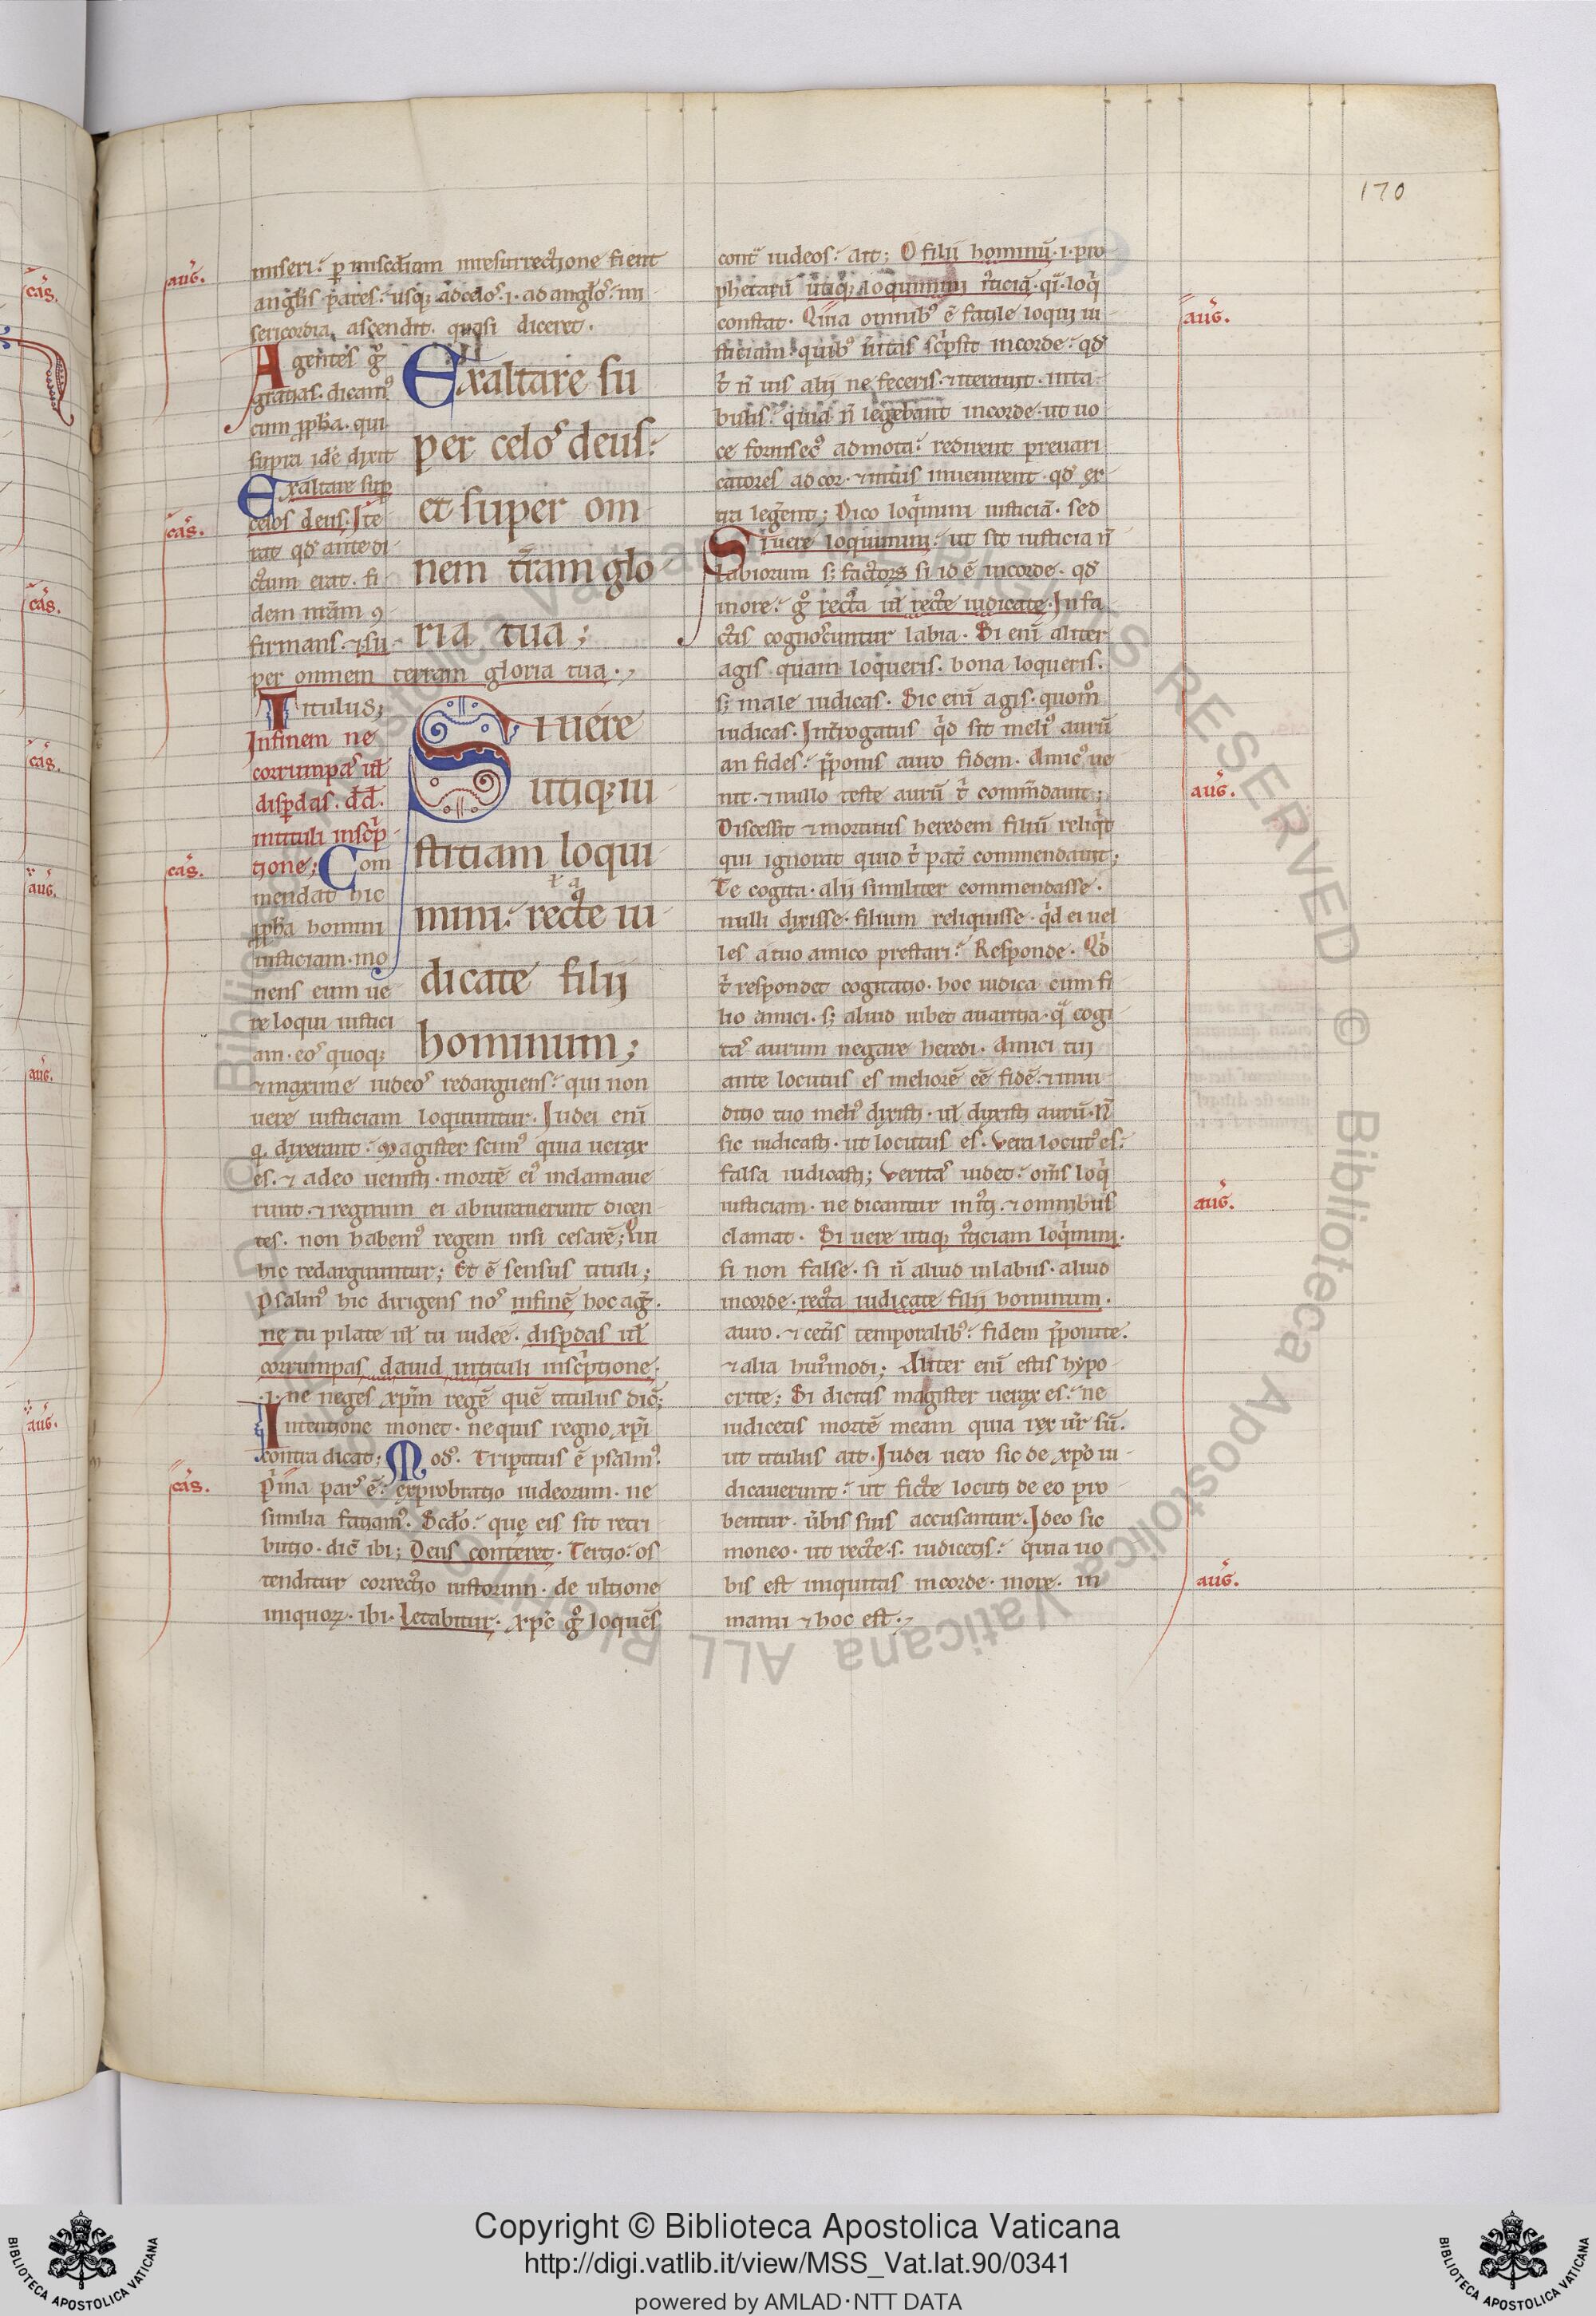 170
auḡ.
miseri. p̄ misc̄diam inresurrectione fient
anḡlis pares. usq; adcelos. i. ad anḡlos. mi
sericordia ascendit. quasi diceret.
Agentes ḡ
gratias. dicam᾽
cum pp̄ha. qui
supra idē dixit
Exaltare sup̄
celos deus. Ite
rat qd̄ ante di
ctum erat. fi
dem nr̄am ꝯ
firmans. ⁊ su
per omnem terram gloria tua.
Exaltare su
per celos deus.
et super om
nem t̄ram glo
ria tua;
cas̄.
Titulus;
Infinem ne
corrumpas ul̄
disp̄das. dd̄.
intituli inscp̄
tione; Com
mendat hic
pp̄ha homini
iusticiam. mo
nens eum ue
re loqui iustici
am. eos quoq;
Si uere
utiq; iu
stitiam loqui
mini. recte iu
dicate filii
hominum;
cas̄.
⁊ maxime iudeos redarguens. qui non
uere iusticiam loquuntur. Iudei eni᷑
q. dixerant. magister scim᾽ quia uerax
es. ⁊ a deo uenisti. mortē ei᾽ inclamaue
runt. ⁊ regnum ei abiurauerunt dicen
tes. non habem᾽ regem nisi cesarē;
hic redarguuntur; Et ē sensus tituli;
Psalm᾽ hic dirigens nos infinē hoc aḡ.
ne tu pilate ul̄ tu iudee. disp̄das ul̄
corrumpas dauid intituli inscp̄tione.
.i. ne neges xpm̄ regē quē titulus dic̄;
Intentione monet. nequis regno xp̄i
contra dicat; Mod᾽. Tripertitus ē psalm᾽.
cas̄.
P̄ma pars ē. exprobratio iudeorum. ne
similia faciam᾽. Scd̄o. que eis sit retri
butio. dic̄ ibi; Deus conteret. Tertio. os
tenditur correctio iustorum. de ultione
iniquoꝝ. ibi. Letabitur. xpc̄ ḡ loquēs
cont᷑ iudeos. ait; O filii hominū. i. pro
phetarū utiq; loquimini iᷤticiā. qm̄. loq̄
auḡ.
constat. Quia omnib᾽ ē facile loqui iu
sticiam. quib᾽ uītas scp̄sit incorde. qd̄
t᷑ n̄ uis alii ne feceris. ⁊ iterauit. inta
bulis. quia n̄ legebant incorde. ut uo
ce forinsec᾽ admota. redirent preuari
catores ad cor. ⁊ intus inuenirent. qd̄ ex
tra leḡent; Dico loq̄mini iusticiā. sed
Si uere loquimini. ut sit iusticia n̄
labiorum s; factorꝝ si id ē incorde. qd̄
inore. ḡ recta ul̄ recte iudicate. Infa
ctis cognoscuntur labia. Si eni᷑ aliter
agis. quam loqueris. bona loqueris.
s; male iudicas. Sic eni᷑ agis. quom̊
iudicas. Int᷑rogatus q̇d sit meli᾽ aurū
an fides. p̄ponis auro fidem. Amic᾽ ue
auḡ.
nit. ⁊ nullo teste aurū t᷑ comm̄dauit;
Discessit ⁊ mortuus heredem filiū reliq̇t
qui ignorat quid t᷑ pat᷑ commendauit;
Te cogita. alii similiter commendasse.
nulli dixisse. filium reliquisse. q̇d ei uel
les a tuo amico prestari. Responde. Qd̄
t᷑ respondet cogitatio. hoc iudica cum fi
lio amici. s; aliud iubet auaritia. q̄ cogi
tas aurum negare heredi. Amici tui
ante locutus es meliorē eē fidē. ⁊ inui
dicio tuo meli᾽ dixisti. ul̄ dixisti aurū. N̄
sic iudicasti. ut locutus es. Vera locut᾽ es.
falsa iudicasti; Veritas iudet. om̄s loq̇
iusticiam. ne dicantur iniq̇. ⁊ omnibus
auḡ.
clamat. Si uere utiq; iᷤticiam loq̇mini.
si non false. si n̄ aliud inlabiis. aliud
incorde. recta iudicate filii hominum.
auro. ⁊ cet᷑is temporalib᾽. fidem p̄ponite.
⁊ alia hui᾽modi; Aliter eni᷑ estis hypo
crite; Si dicitis magister uerax es. ne
iudicetis mortē meam quia rex ur̄ sū.
ut titulus ait. Iudei uero sic de xp̄o iu
dicauerunt. ut ficte locuti de eo pro
bentur. ūbis suis accusantur. Ideo sic
moneo. ut recte. s. iudicetis. quia uo
auḡ.
bis est iniquitas incorde. inore. in
manu ⁊ hoc est.
cas̄.
cas̄.
cas̄.
auḡ.
auḡ.
auḡ.
© Biblioteca Apostolica Vaticana ALL RIGHTS RESERVED
Copyright © Biblioteca Apostolica Vaticana
http://digi.vatlib.it/view/MSS_Vat.lat.90/0341
powered by AMLAD·NTT DATA
BIBLIOTECA APOSTOLICA VATICANA
BIBLIOTECA APOSTOLICA VATICANA